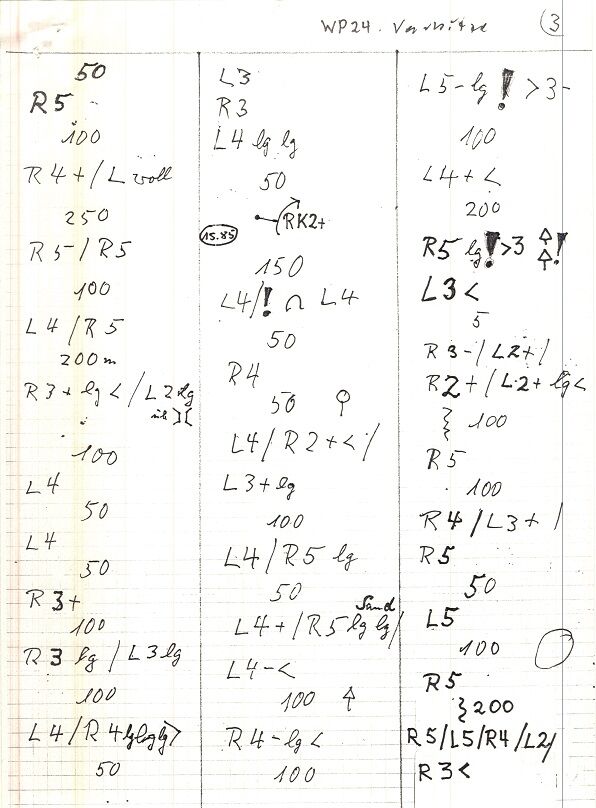 WP24.
3
50
R5
100
R4+/L voll
250
R5/R5
100
L4/R5
200m
R3+ lg < /L2 lg
100
L4
50
L4
50
R3+
100
R3 lg /L3 lg
100
L4/R4 lg lg lg >
50
L3
R3
L4 lg lg
50
RK2+
15.85
150
L4/! ∩ L4
50
R4
50
L4/R2+</
L3+lg
100
L4/R5 lg
50
Sand
L4+/R5 lg lg/
L4-<
100
R4-lg<
100
L5-lg! >3-
100
L4+<
200
R5 lg!>3 !
L3<
5
R3-/L2+/
R2+/L2+ lg<
100
R5
100
R4/L3+/
R5
50
L5
100
R5
200
R5/L5/R4/L2/
R3<